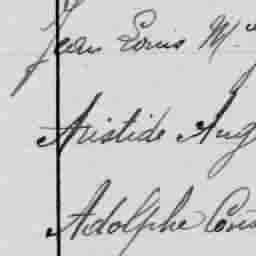 Jean Louis M
Aristide Aug
Adolphe Cons